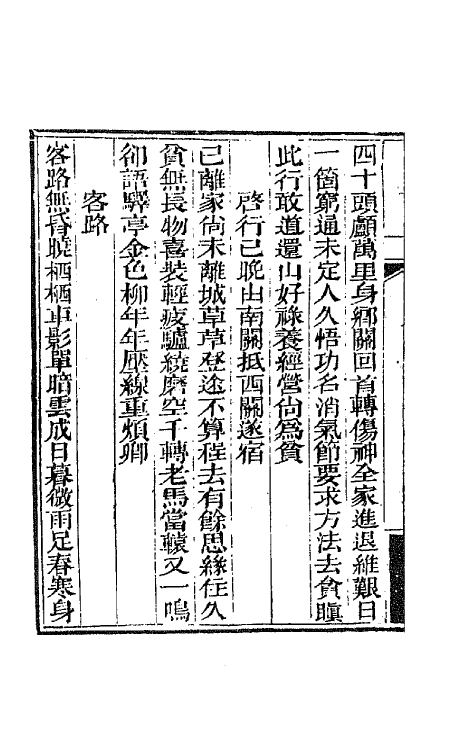 四十頭顱萬里身鄉關回首轉傷神全家進退維艱日
一箇窮通未定人久悟功名消氣節要求方法去貪瞋
此行敢道還山好祿養經營尙爲貧
啓行已晚由南關抵西關遂宿
已離家尙未離城草草登途不算程去有餘思緣住久
貧無長物喜裝輕疲驢繞磨空千轉老馬當轅又一鳴
卻語驛亭金色柳年年壓線重煩卿
客路
客路無昏曉栖栖車影單暗雲成日暮微雨足春寒身